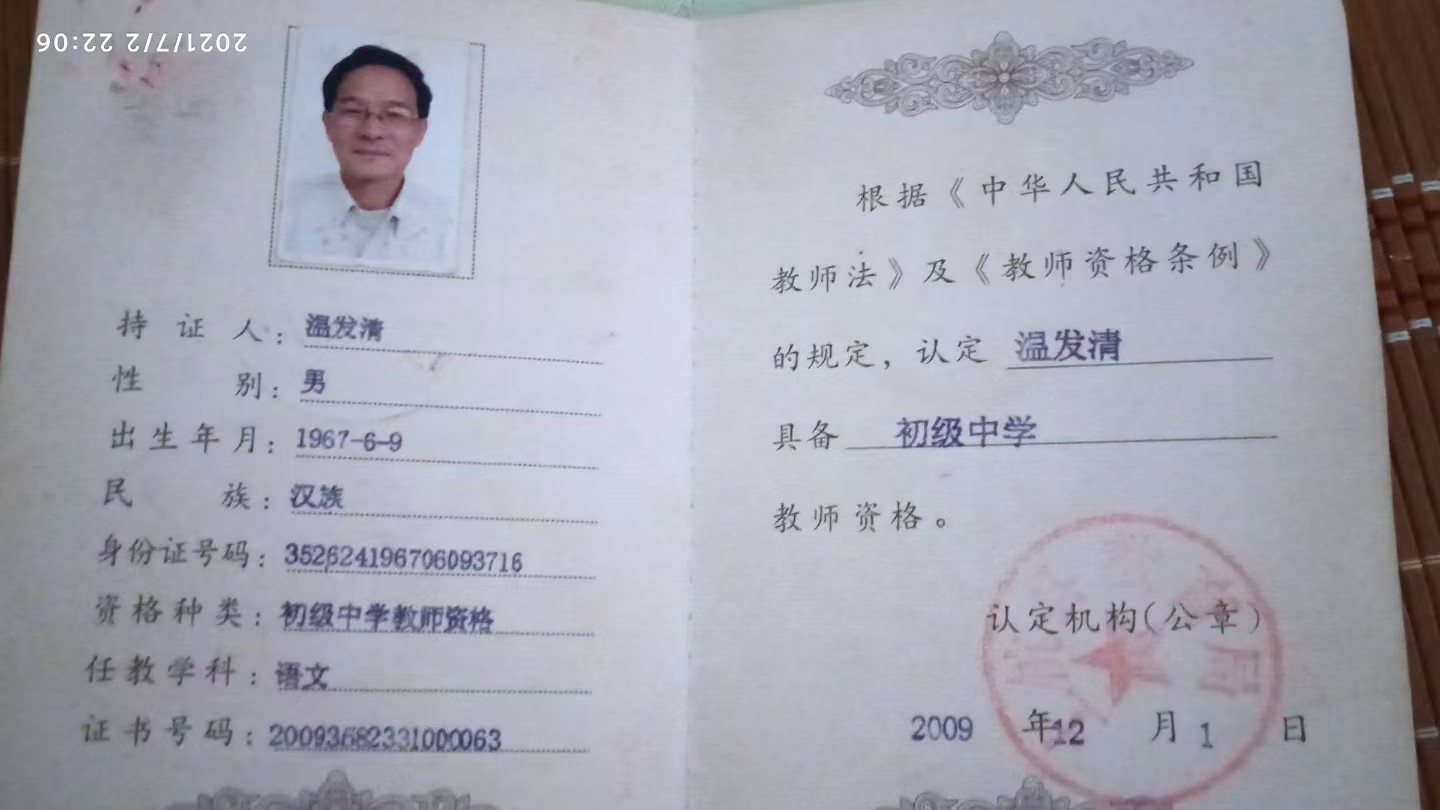 2021/7/2 22:06
持证人：温发清
性别：男
出生年月：1967-6-9
民族：汉族
身份证号码：352624196706093716
资格种类：初级中学教师资格
任教学科：语文
证书号码：20093682331000063
根据《中华人民共和国
教师法》及《教师资格条例》
的规定，认定 温发清
具备 初级中学
教师资格。
认定机构（公章）
2009 年12 月 1 日